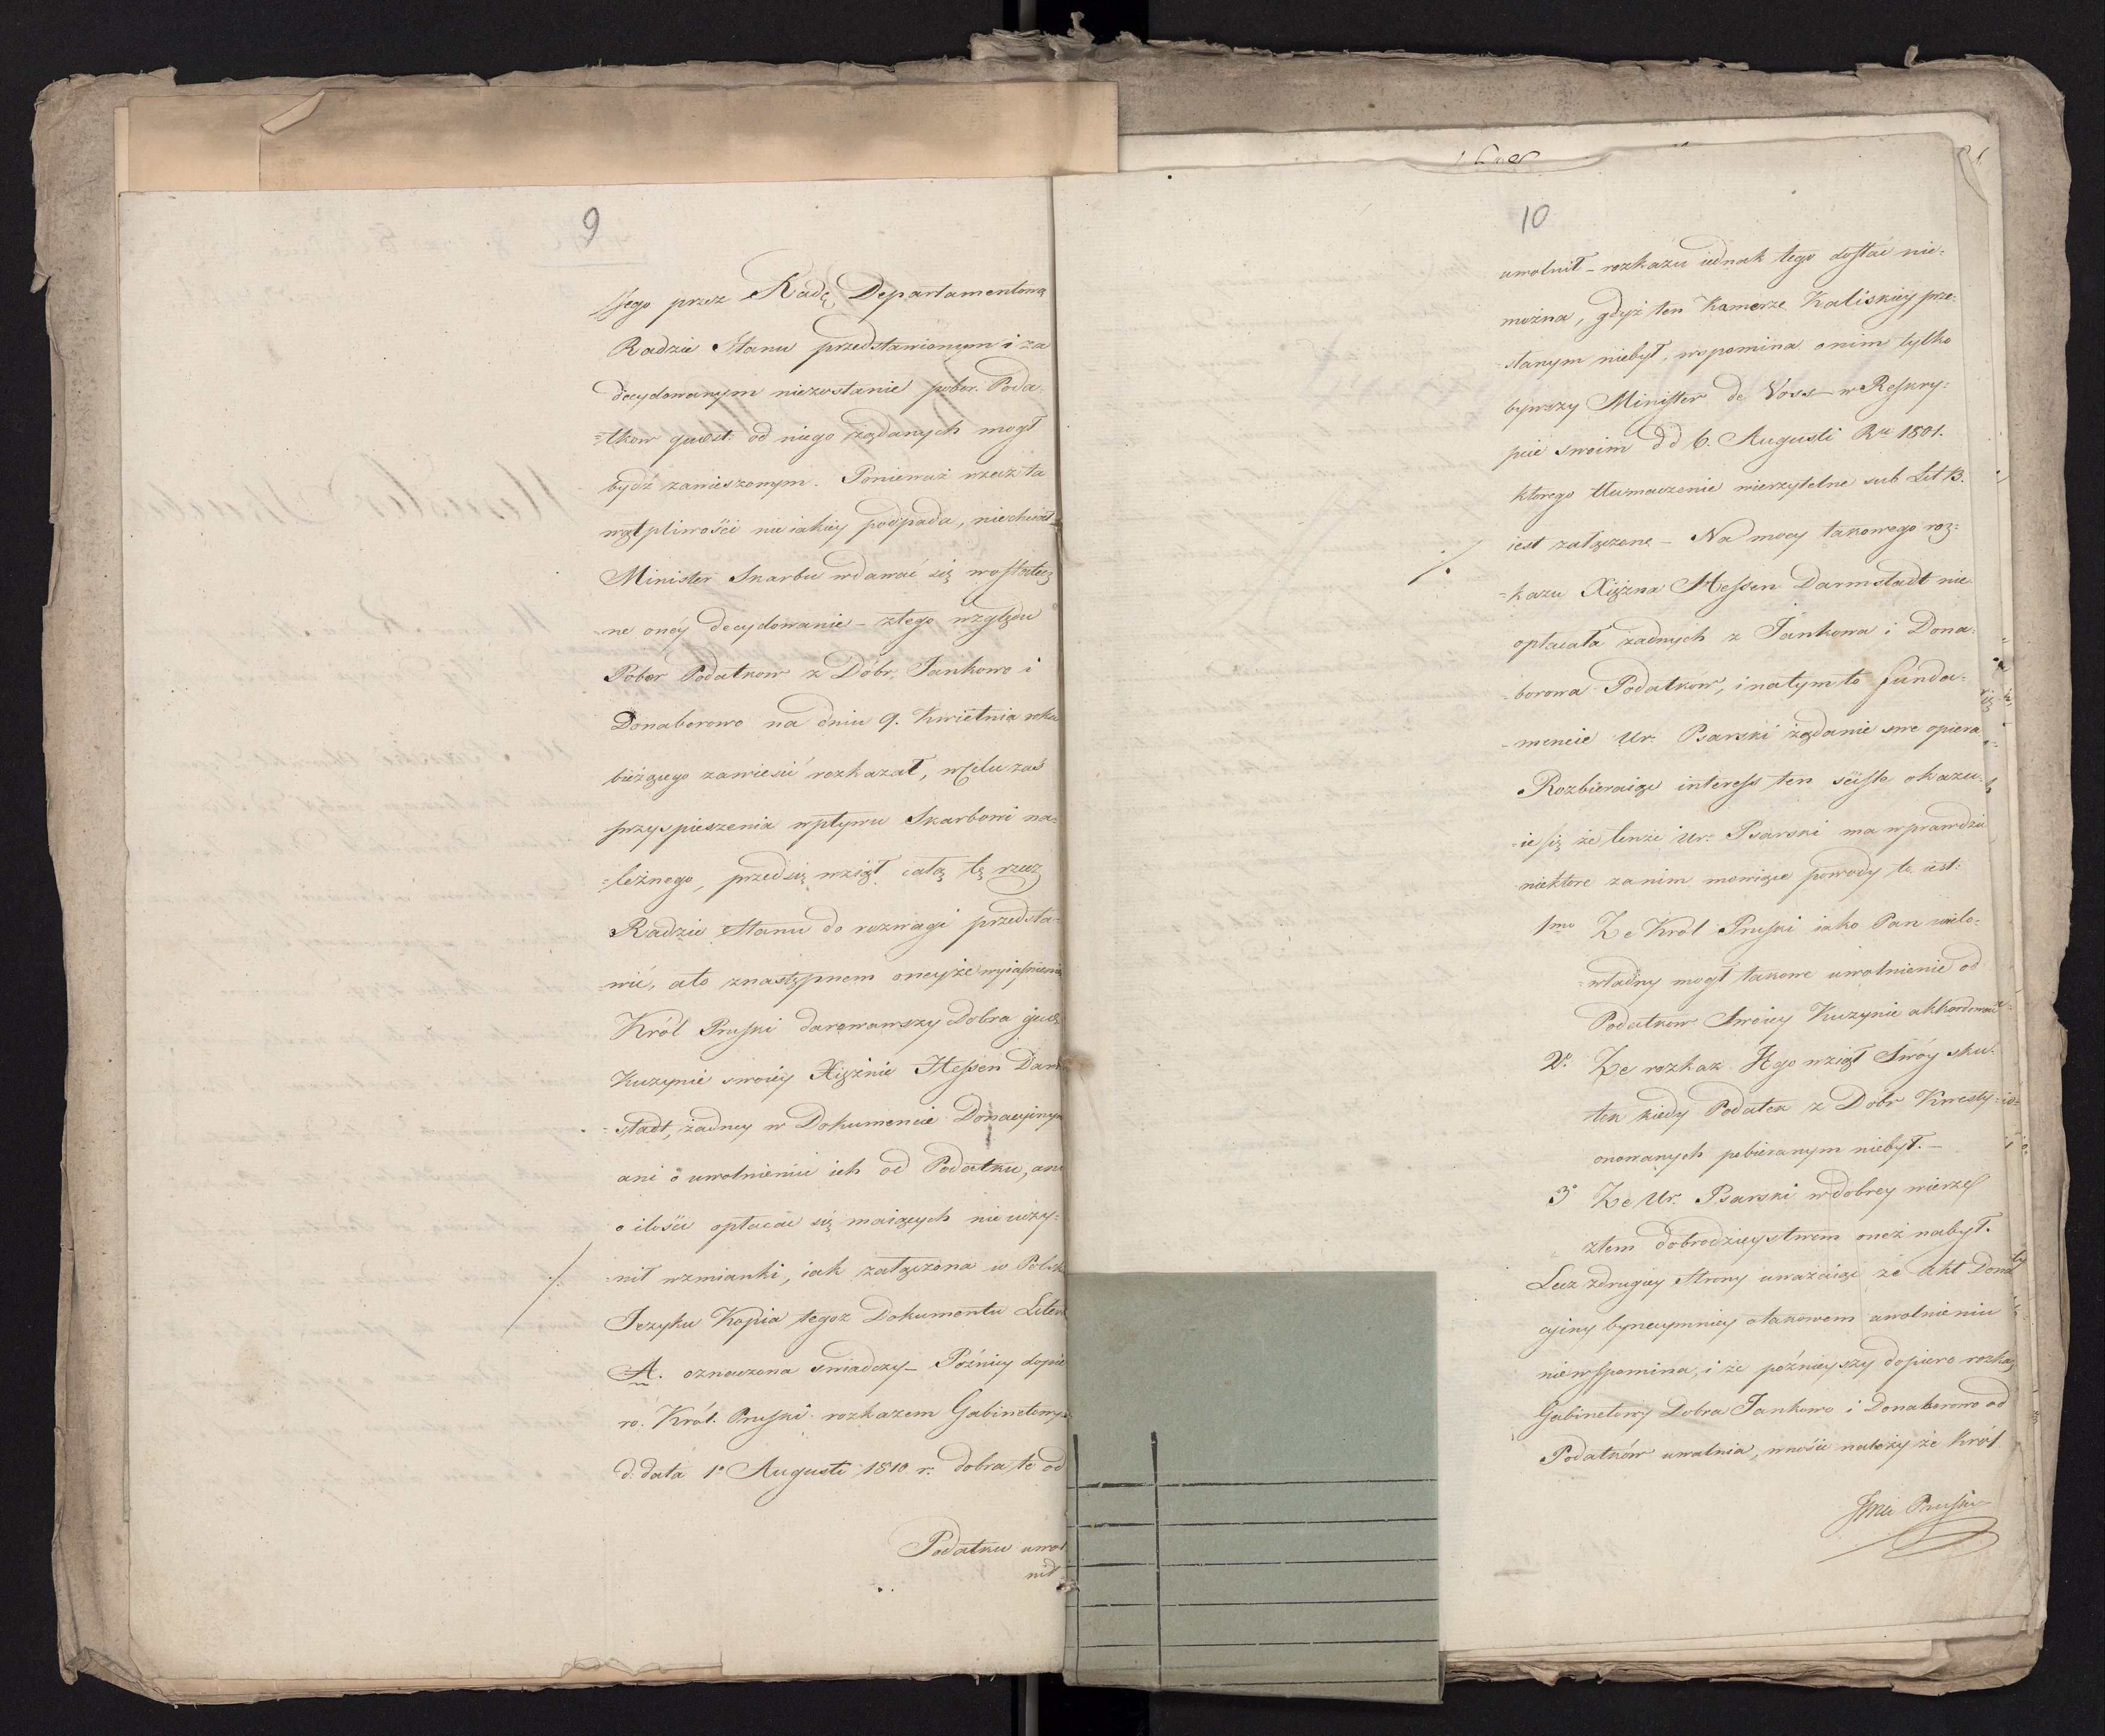 9
Jego przez Radę Departamentową
Radzie Stanu przedstawionym i za
decydowanym niezostanie pobor Poda-
=tkow quest: od niego żądanych mogł
bydź zawieszonym. Ponieważ rzecz ta
wątpliwości nie iakiey podpada, niechciał
Minister Skarbu wdawać się w ostatecz
=ne onéy decydowanie – z tego względu
Pobor Podatkow z Dóbr Jankowo i
Donaborowo na dniu 9. Kwietnia roku
bieżącego zawiesić rozkazał, w Celu zaś
przyspieszenia wpływu Skarbowi na-
=leżnego, przedsię wziął całą tę rzecz
Radzie Stanu do rozwagi przedsta-
wić, a to z następnem oneyże wyiaśnieniem
Król Pruski darowawszy Dobra ques
Kuzynie swoiey Xiężnie Hessen Darm
=stadt, żadney w Dokumencie Donacyinym
ani o uwolnieniu ich od Podatku, ani
o ilości opłacać się maiących nie uczy=
nił wzmianki, iak załączona w Polsk
Języku Kopia tegoż Dokumentu Liter
A. oznaczona świadczy – Pożniey dopie
ro Król Pruski rozkazem Gabinetowym
d. data 1° Augusti 1810 r. dobra te od
Podatku uwol
nił
10
uwolnił – rozkazu iednak tego dostać nie-
można, gdyż ten Kamerze Kaliskiey prze-
słanym niebył, wspomina o nim tylko
bywszy Minister de Voss w Reskry-
pcie swoim dd 6. Augusti Ru 1801.
ktorego tłumaczenie wierzytelne sub Lit B.
iest załączone – Na mocy takowego roz=
=kazu Xiężna Hessen Darmstadt nie
opłacała żadnych z Jankowa i Dona-
=borowa Podatków, i na tym to funda-
=mencie Ur. Psarski żądanie swe opiera
Rozbieraiąc interess ten ściśle okazu-
=ie się że tenże Ur. Psarski ma wprawdzie
niektore za nim mowiące powody to iest:
1mo Że Król Pruski iako Pan wielo-
=władny mogł takowe uwolnienie od
Podatkow Swoiey Kuzynie akkordować
2° Że rozkaz Jego wziął Swóy sku-
tek kiedy Podatek z Dobr Kwesty-
onowanych pobieranym niebył. –
3° Że Ur. Psarski w dobrey wierze
z tem dobrodzieystwem oneż nabył.
Lecz z drugiey Strony uważaiąc że Akt Dona
cyiny bynaymniey o takowem uwolnieniu
nie wspomina, i że poźnieyszy dopiero rozkaz
Gabinetowy Dobra Jankowo i Donaborowo od
Podatków uwalnia, wnosić należy że Król
Pruski